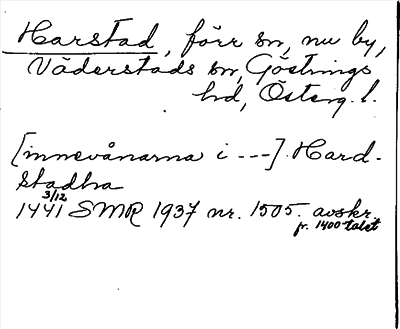 Harstad, förr sn, nu by,
Väderstads sn, Göstrings
hd, Österg. l.
[innevånarna i ---] Hard-
stadha
3/12
1441 SMR 1937 nr. 1505. avskr.
fr. 1400-talet